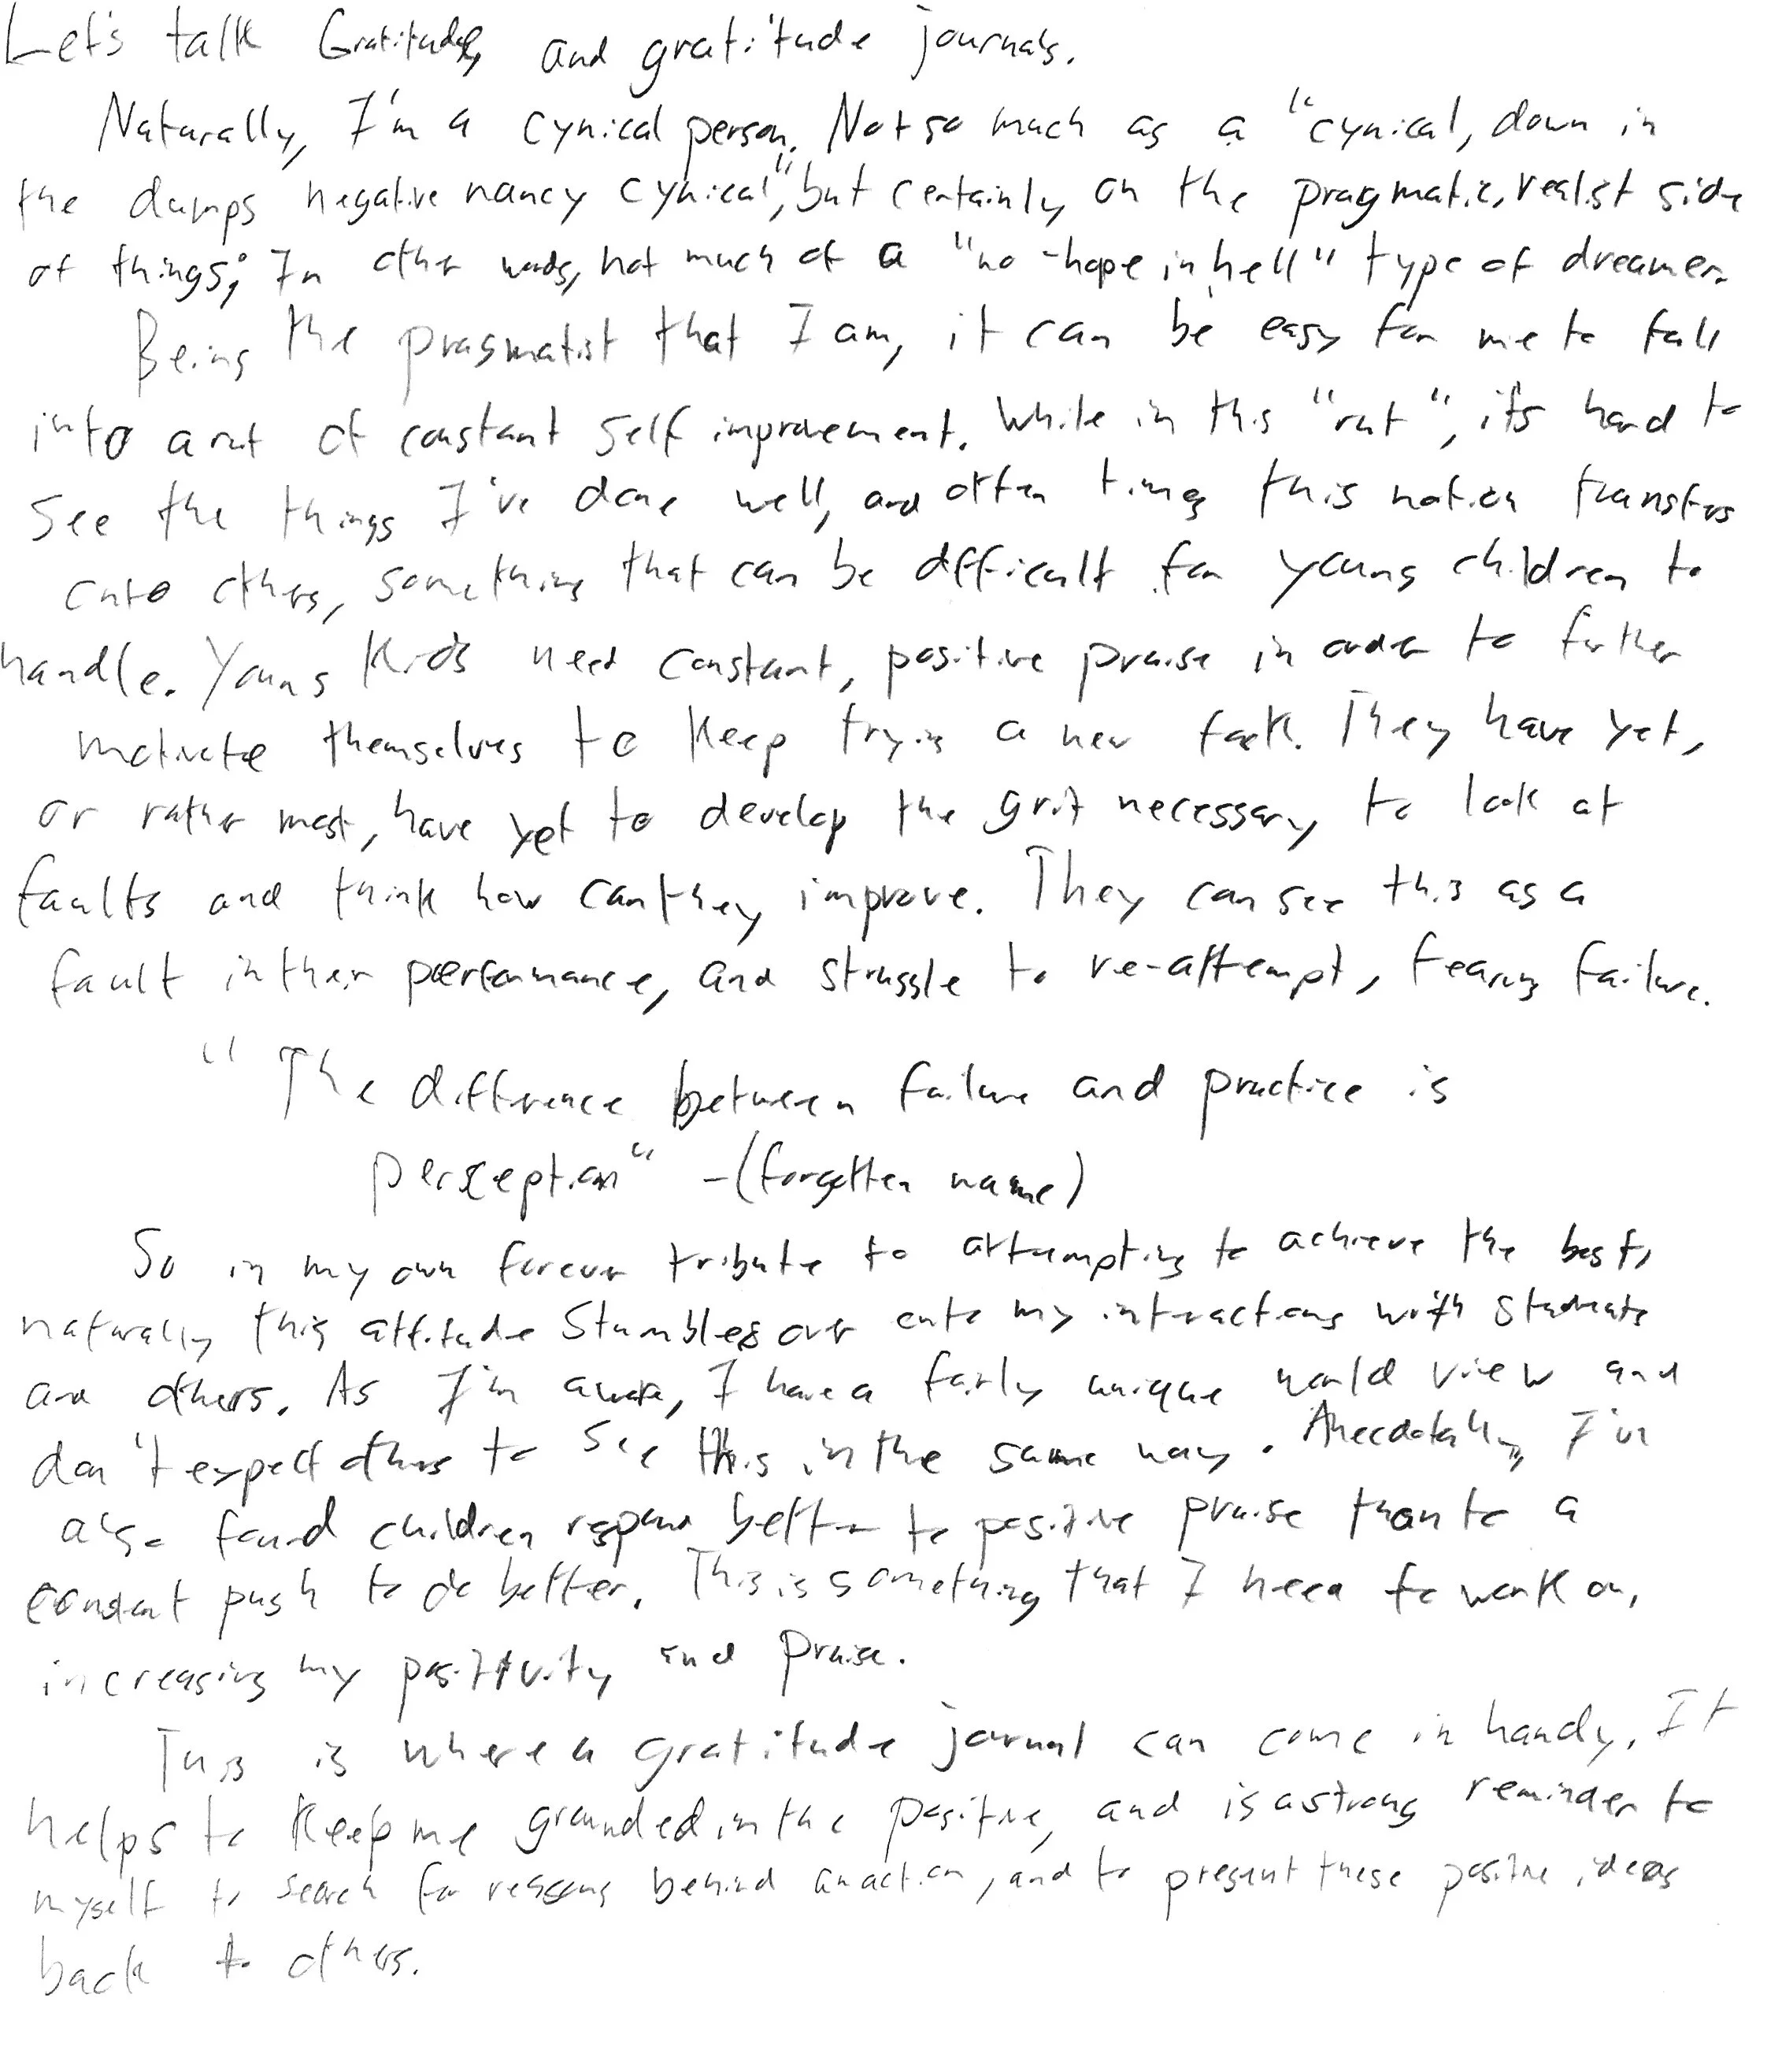 Let's talk Gratitude, and gratitude journals.
Naturally, I'm a cynical person. Not so much as a "cynical, down in
the dumps negative nancy cynical", but certainly on the pragmatic, realist side
of things; In other words, not much of a "no-hope in hell" type of dreamer.
Being the pragmatist that I am, it can be easy for me to fall
into a rut of constant self improvement. While in this "rut", it's hard to
see the things I've done well, and often times this notion transfers
onto others, something that can be difficult for young children to
handle. Young Kids need constant, positive praise in order to further
motivate themselves to keep trying a new task. They have yet,
or rather most, have yet to develop the grit necessary to look at
faults and think how can they improve. They can see this as a
fault in their performance, and struggle to re-attempt, fearing failure.
"The difference between failure and practice is
perception" -(forgotten name)
So in my own forever tribute to attempting to achieve the best,
naturally this attitude stumbles over onto my interactions with students
and others. As I'm aware, I have a fairly unique world view and
don't expect others to see this in the same way. Anecdotally, I've
also found children respond better to positive praise than to a
constant push to do better. This is something that I need to work on,
increasing my positivity and praise.
This is where a gratitude journal can come in handy. It
helps to keep me grounded in the positive, and is a strong reminder to
myself to search for reasons behind an action, and to present these positive ideas
back to others.